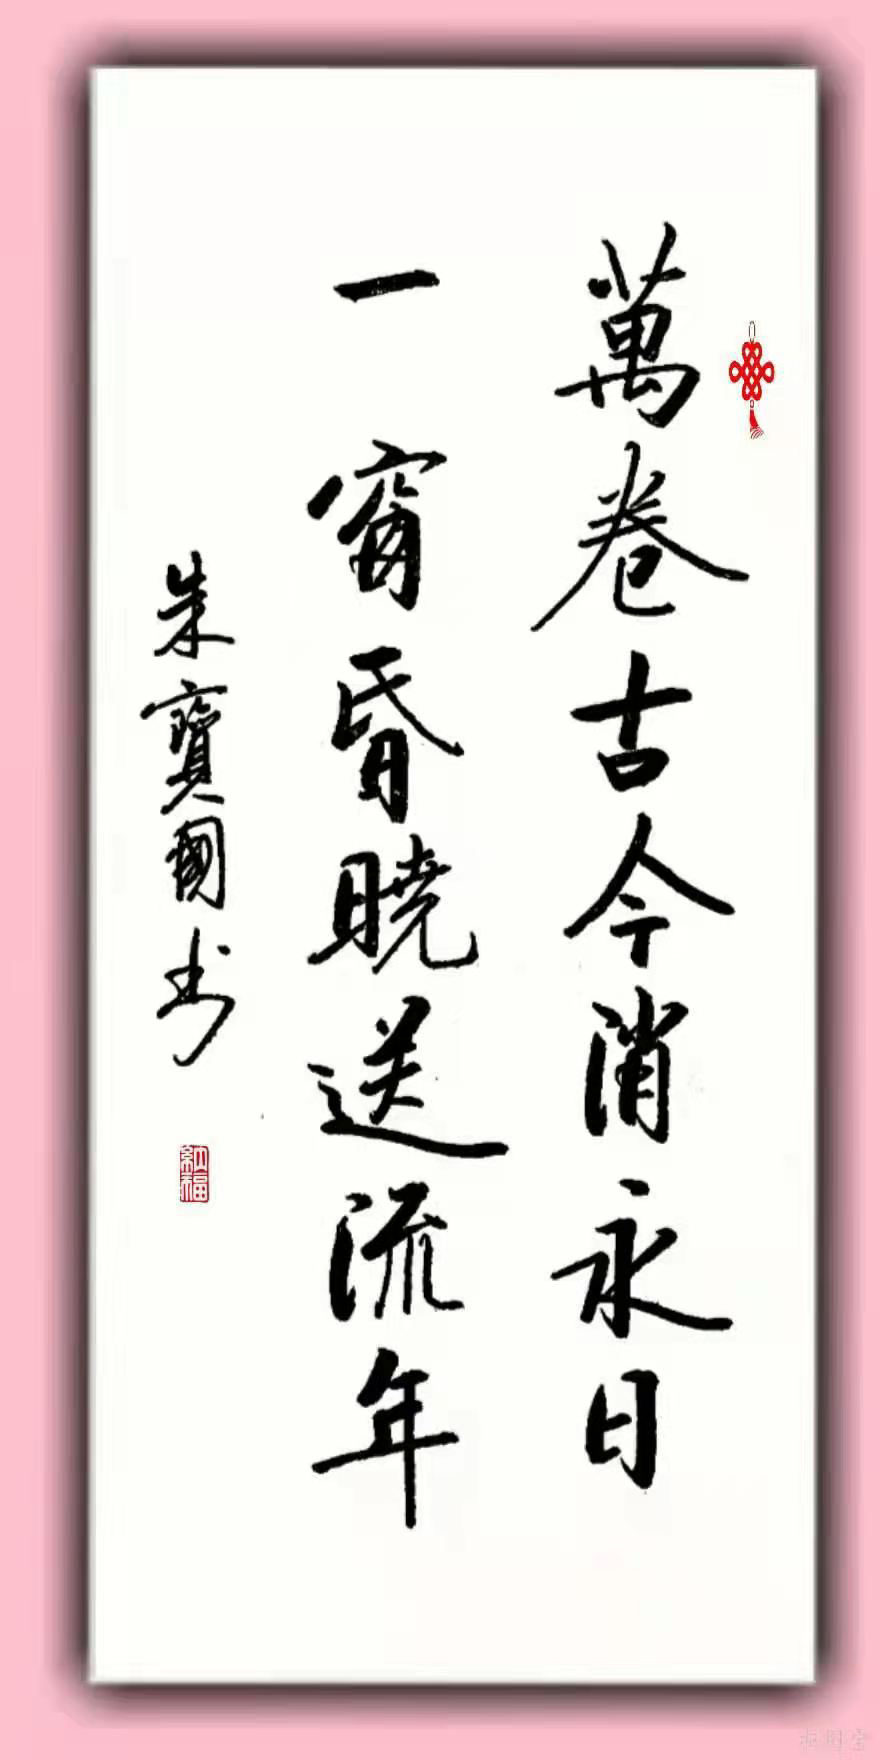 萬卷古今消永日
一窗昏曉送流年
朱寶國书
納福